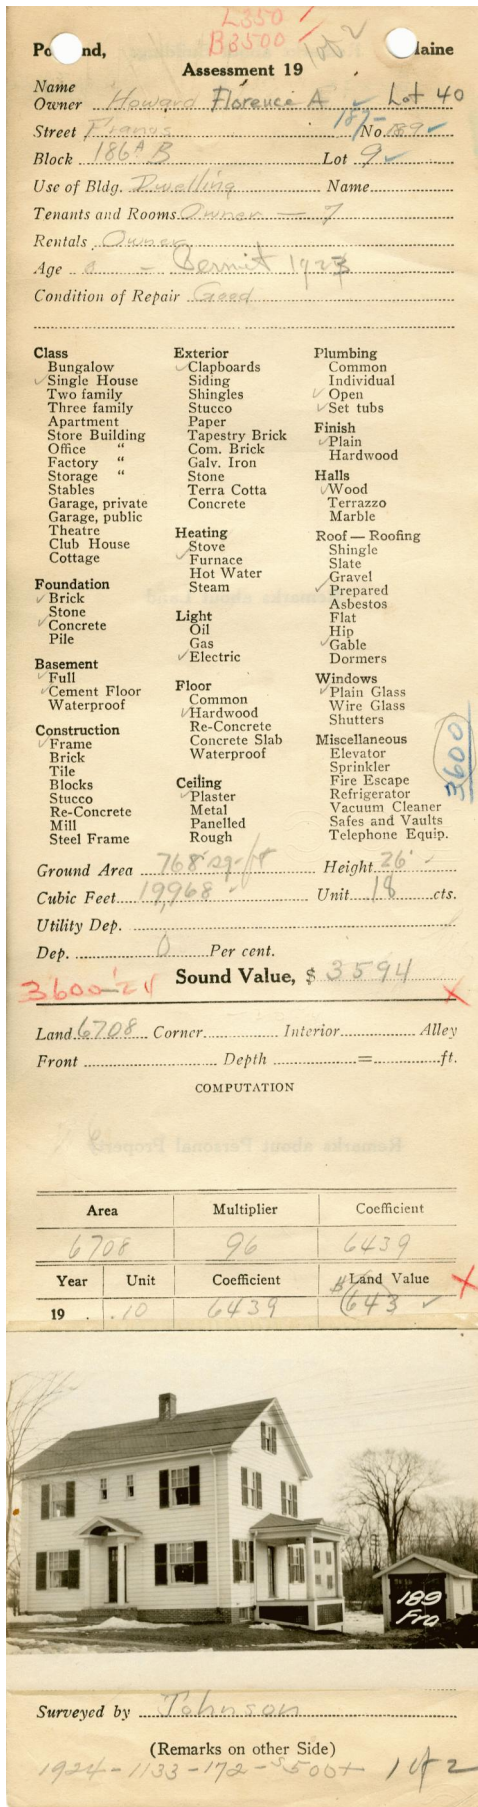 L350 /
B3500 /
1 of 2
Po nd, aine
Assessment 19
Name
Owner Howard Florence A ✓ Lot 40
187-
Street Francis No. 189 ✓
Block 186A B Lot 9 ✓
Use of Bldg. Dwelling Name
Tenants and Rooms Owner — 7
Rentals Owner
Age 0 - Permit 1923
Condition of Repair Good
Class
Bungalow
✓ Single House
Two family
Three family
Apartment
Store Building
Office "
Factory "
Storage "
Stables
Garage, private
Garage, public
Theatre
Club House
Cottage
Foundation
✓ Brick
Stone
✓ Concrete
Pile
Basement
✓ Full
✓ Cement Floor
Waterproof
Construction
✓ Frame
Brick
Tile
Blocks
Stucco
Re-Concrete
Mill
Steel Frame
Exterior
✓ Clapboards
Siding
Shingles
Stucco
Paper
Tapestry Brick
Com. Brick
Galv. Iron
Stone
Terra Cotta
Concrete
Heating
Stove
✓ Furnace
Hot Water
Steam
Light
Oil
Gas
✓ Electric
Floor
Common
✓ Hardwood
Re-Concrete
Concrete Slab
Waterproof
Ceiling
✓ Plaster
Metal
Panelled
Rough
Plumbing
Common
Individual
✓ Open
✓ Set tubs
Finish
✓ Plain
Hardwood
Halls
✓ Wood
Terrazzo
Marble
Roof — Roofing
Shingle
Slate
Gravel
✓ Prepared
Asbestos
Flat
Hip
✓ Gable
Dormers
Windows
✓ Plain Glass
Wire Glass
Shutters
Miscellaneous
Elevator
Sprinkler
Fire Escape
Refrigerator
Vacuum Cleaner
Safes and Vaults
Telephone Equip.
3600
Ground Area 768 sq-ft Height 26'
Cubic Feet 19,968 Unit 18 cts.
Utility Dep.
Dep. 0 Per cent.
Sound Value, $ 3594
3600-'24 X
Land 6708 Corner Interior Alley
Front Depth = ft.
COMPUTATION
Area Multiplier Coefficient
6708 96 6439
Year Unit Coefficient Land Value X
19 . .10 6439 $643 ✓
189
Fra
Surveyed by Johnson
(Remarks on other Side)
1924-1133-172-$5500+ 1 of 2